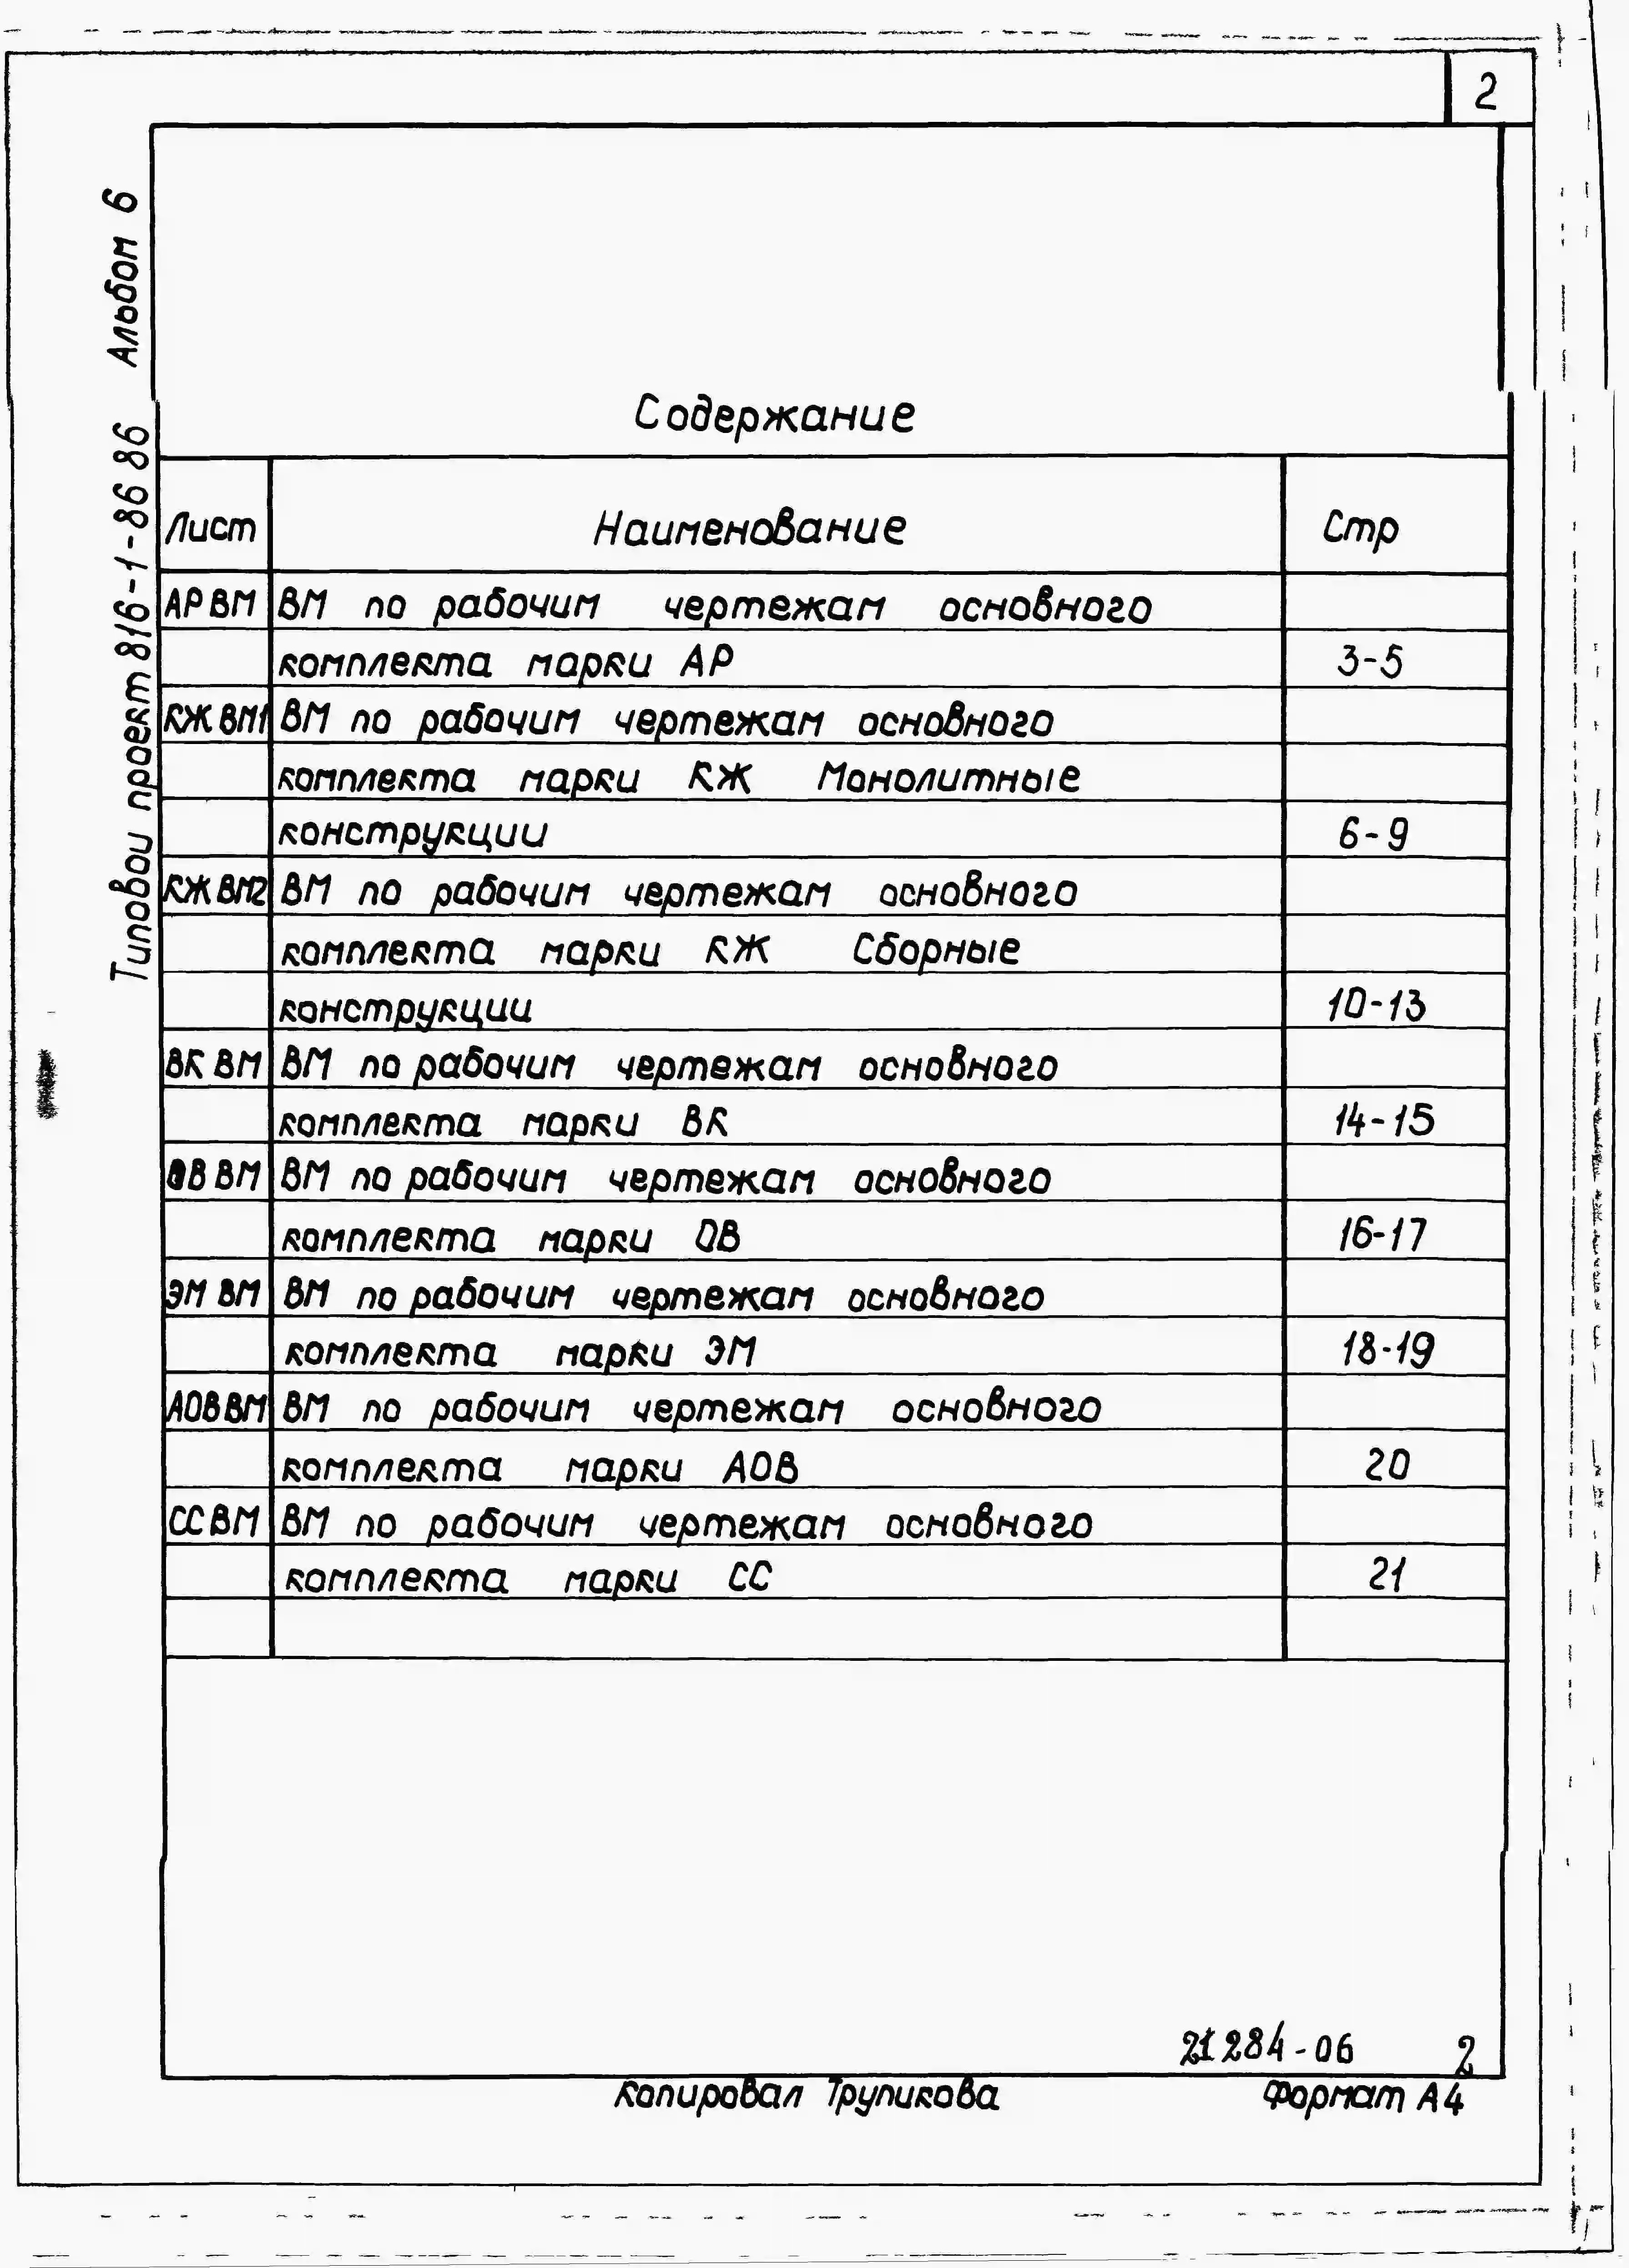 2
Типовой проект 816-1-86 86 Альбом 6
Содержание
Лист Наименование Стр
АР ВМ ВМ по рабочим чертежам основного
комплекта марки АР 3-5
КЖ ВМ1 ВМ по рабочим чертежам основного
комплекта марки КЖ Монолитные
конструкции 6-9
КЖ ВМ2 ВМ по рабочим чертежам основного
комплекта марки КЖ Сборные
конструкции 10-13
ВК ВМ ВМ по рабочим чертежам основного
комплекта марки ВК 14-15
ОВ ВМ ВМ по рабочим чертежам основного
комплекта марки ОВ 16-17
ЭМ ВМ ВМ по рабочим чертежам основного
комплекта марки ЭМ 18-19
АОВ ВМ ВМ по рабочим чертежам основного
комплекта марки АОВ 20
СС ВМ ВМ по рабочим чертежам основного
комплекта марки СС 21
21284-06 2
Копировал Трупикова Формат А4